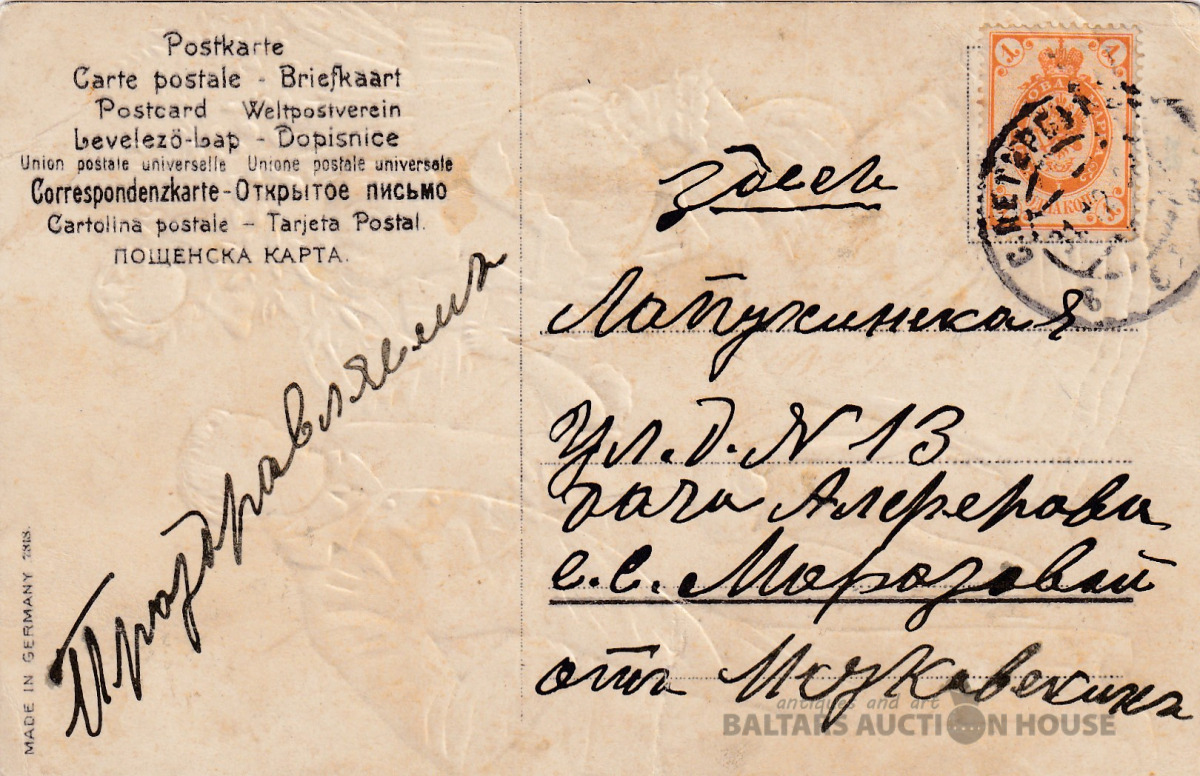 Postkarte
Carte postale - Briefkaart
Postcard Weltpostverein
Levelező-Lap - Dopisnice
Union postale universelle Unione postale universale
Correspondenzkarte - Открытое письмо
Cartolina postale - Tarjeta Postal.
ПОЩЕНСКА КАРТА.
Поздравляемъ
MADE IN GERMANY
1 1
С.ПЕТЕРБУРГ
здесь
Лапухинская
Ул. д. N 13
дача Алферова
Е. С. Морозовай
отъ
antiques and art
BALTARS AUCTION HOUSE